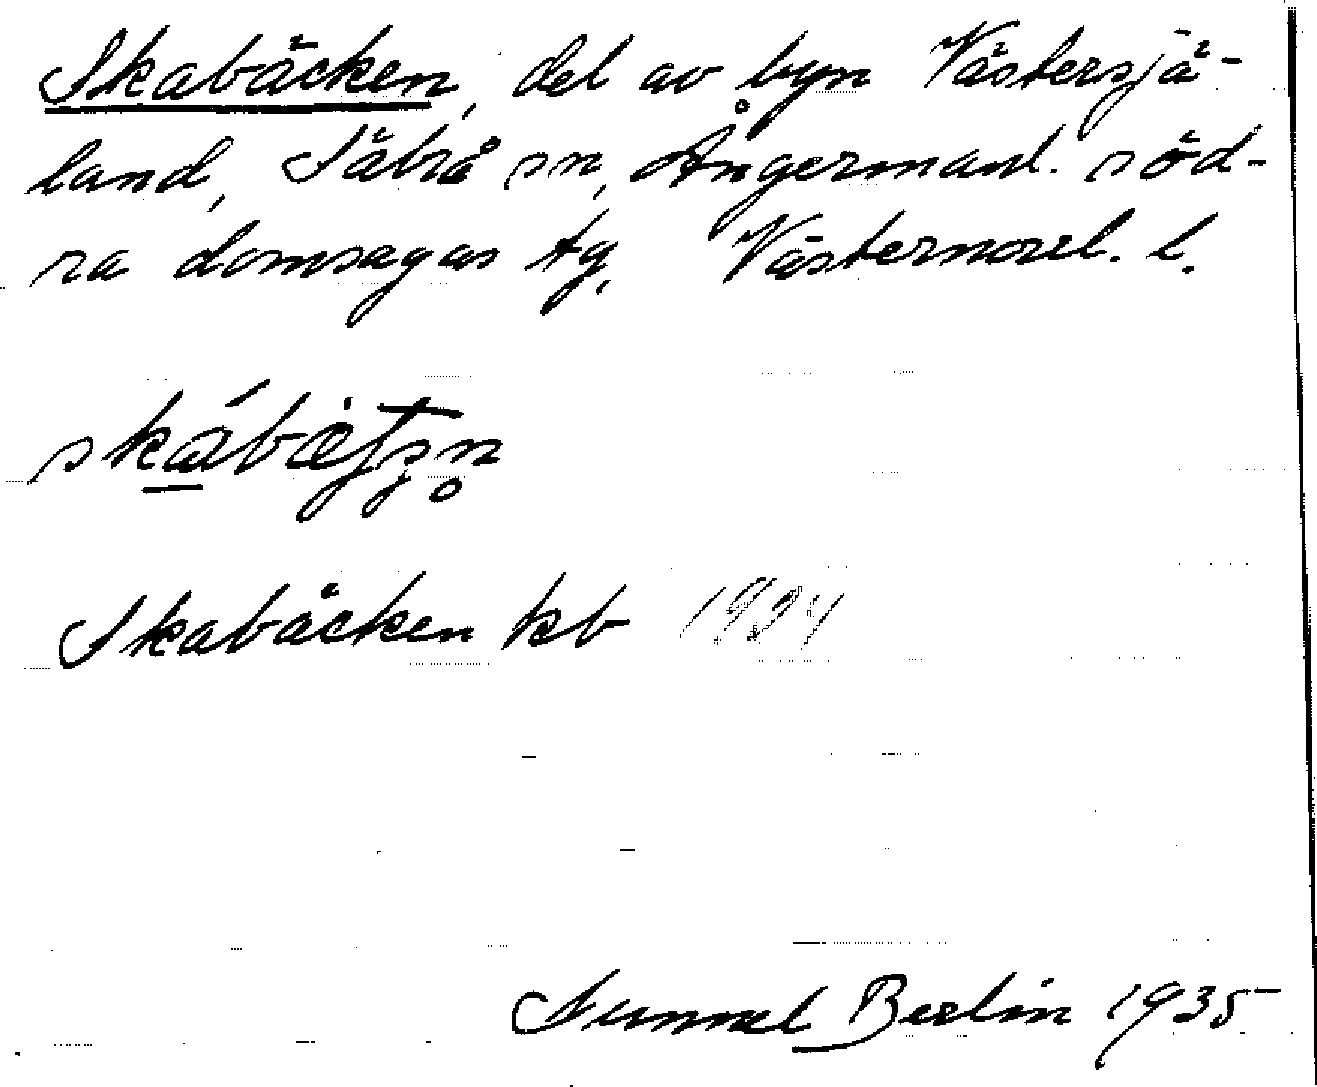 Skabäcken, del av byn Västersjä-
land, Säbrå sn, Ångermanl. söd-
ra domsagas tg, Västernorrl. l.
Skabäcken kb 1924
Berlin 1935